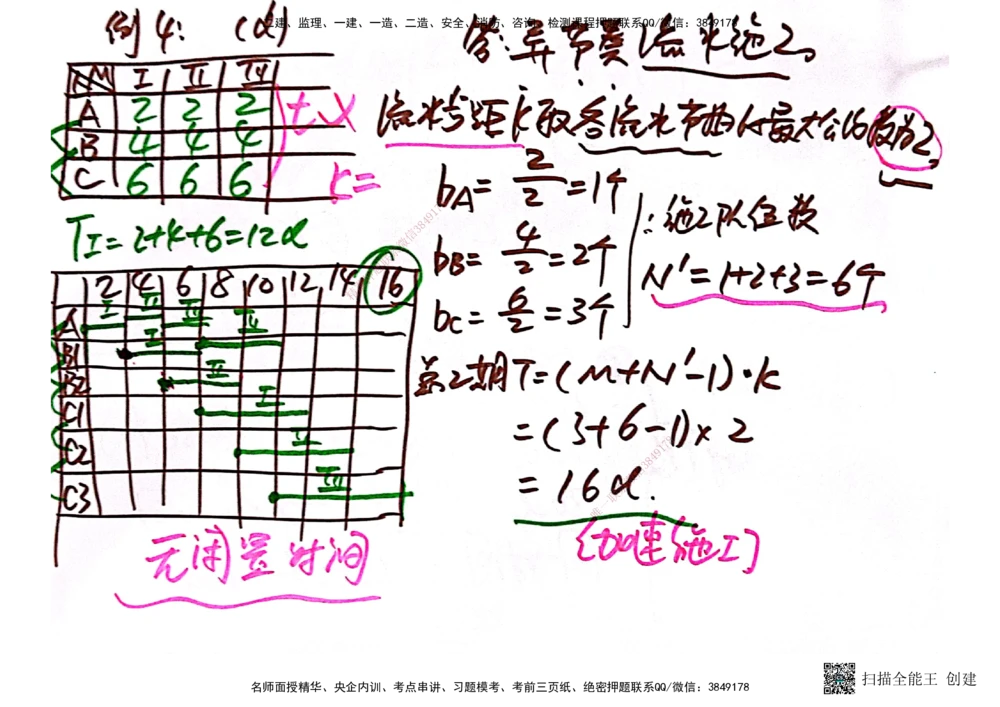 二建、监理、一建、一造、二造、安全、消防、咨询、检测课程押题联系QQ/微信：3849178
例4：（d）
答：异节奏流水施工。
N M I II III
A 2 2 2
B 4 4 4
C 6 6 6
t X
k=
流水步距k取各流水节拍的最大公约数为2,
bA= 2/2 =1个
bB= 4/2 =2个
bC= 6/2 =3个
∴施工队伍数
N'=1+2+3=6个
TI=2+4+6=12d
2 4 6 8 10 12 14 16
A I II III
B1 I III
B2 II
C1 I
C2 II
C3 III
总工期T=(M+N'-1)·k
=(3+6-1)×2
=16d.
{加速施工}
无闲置时间
名师面授精华、央企内训、考点串讲、习题模考、考前三页纸、绝密押题联系QQ/微信：3849178
扫描全能王 创建